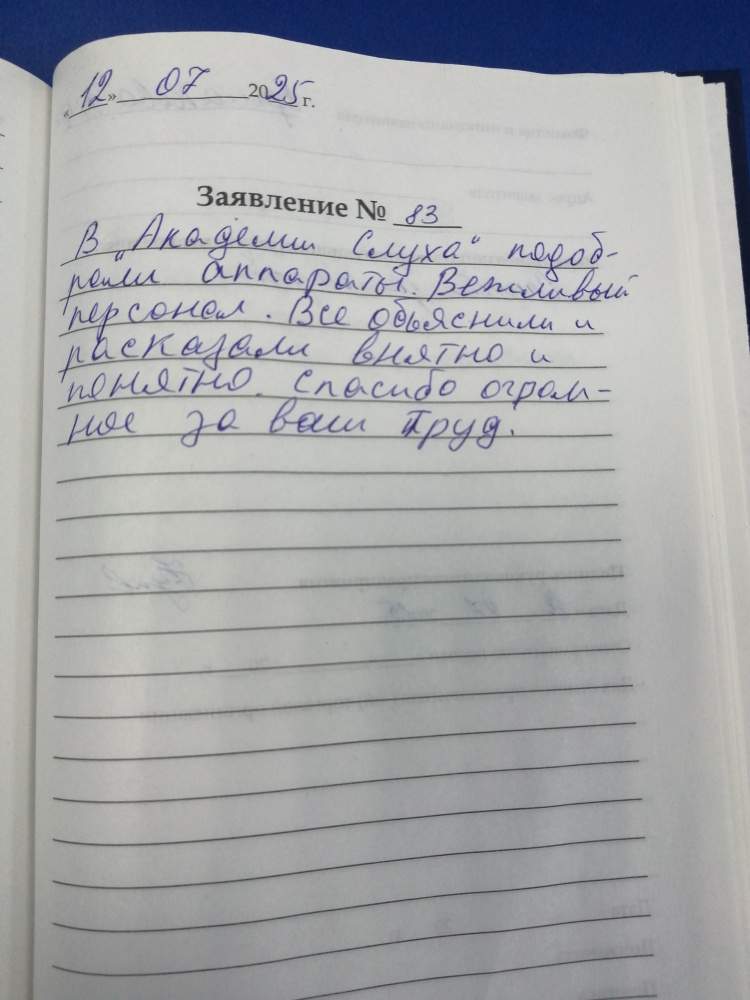 «12» 07 2025 г.
Заявление № 83
В „Академии Слуха“ подоб-
рали аппараты. Вежливый
персонал. Все обьяснили и
рассказали внятно и
понятно. Спасибо огром-
ное за ваш труд.